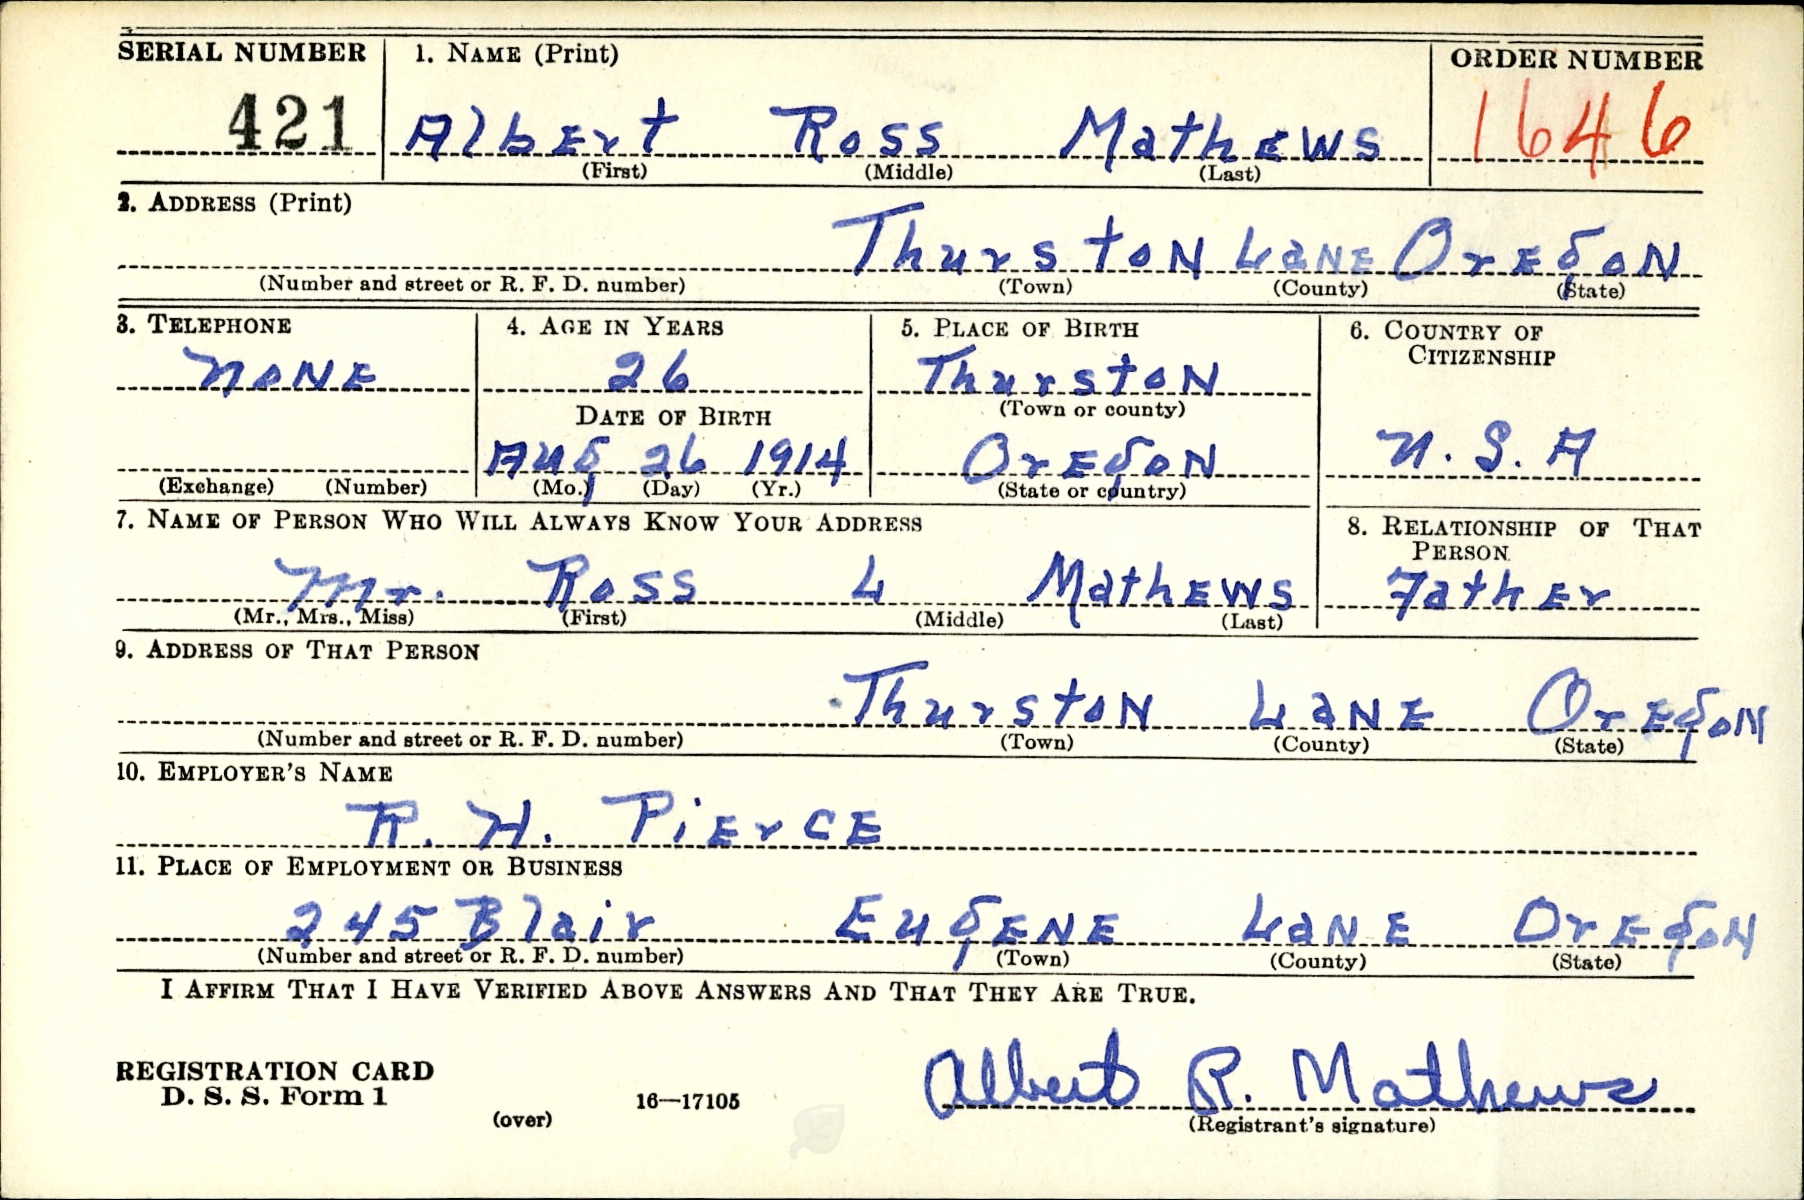 SERIAL NUMBER 1. NAME (Print) ORDER NUMBER
421 Albert Ross Mathews 1646
(First) (Middle) (Last)
2. ADDRESS (Print)
Thurston Lane Oregon
(Number and street or R. F. D. number) (Town) (County) (State)
3. TELEPHONE 4. AGE IN YEARS 5. PLACE OF BIRTH 6. COUNTRY OF CITIZENSHIP
None 26 Thurston
DATE OF BIRTH (Town or county)
Aug 26 1914 Oregon U.S.A
(Exchange) (Number) (Mo.) (Day) (Yr.) (State or country)
7. NAME OF PERSON WHO WILL ALWAYS KNOW YOUR ADDRESS 8. RELATIONSHIP OF THAT PERSON
Mr. Ross L Mathews Father
(Mr., Mrs., Miss) (First) (Middle) (Last)
9. ADDRESS OF THAT PERSON
Thurston Lane Oregon
(Number and street or R. F. D. number) (Town) (County) (State)
10. EMPLOYER'S NAME
R. H. Pierce
11. PLACE OF EMPLOYMENT OR BUSINESS
245 Blair Eugene Lane Oregon
(Number and street or R. F. D. number) (Town) (County) (State)
I AFFIRM THAT I HAVE VERIFIED ABOVE ANSWERS AND THAT THEY ARE TRUE.
REGISTRATION CARD
D. S. S. Form 1 Albert R. Mathews
(over) 16—17105 (Registrant's signature)